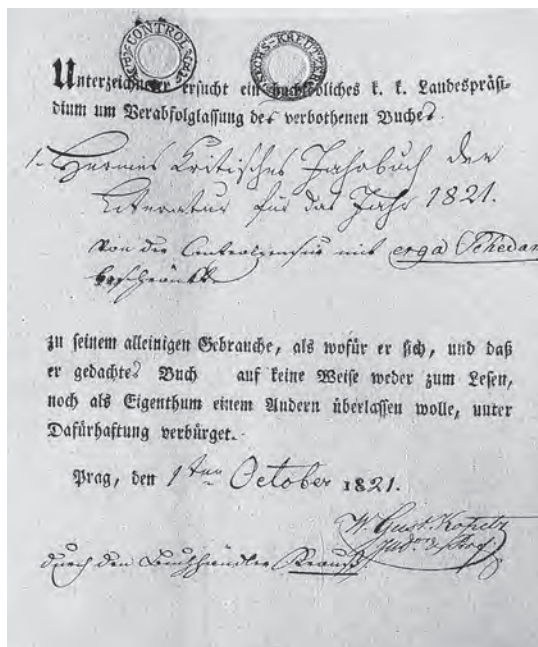 CONTROL
SECHS-KREUTZER
Unterzeichneter ersucht ein hochlöbliches k. k. Landespräsi-
dium um Verabfolglassung des verbothenen Buches
1. Hermes Kritisches Jahrbuch der
Literatur für das Jahr 1821.
von der Centralzensur mit erga Schedam
beschränkt
zu seinem alleinigen Gebrauche, als wofür er sich, und daß
er gedachtes Buch auf keine Weise weder zum Lesen,
noch als Eigenthum einem Andern überlassen wolle, unter
Dafürhaftung verbürget.
Prag, den 1ten October 1821.
W. Gust. Kopetz
durch den Buchhändler Krauß